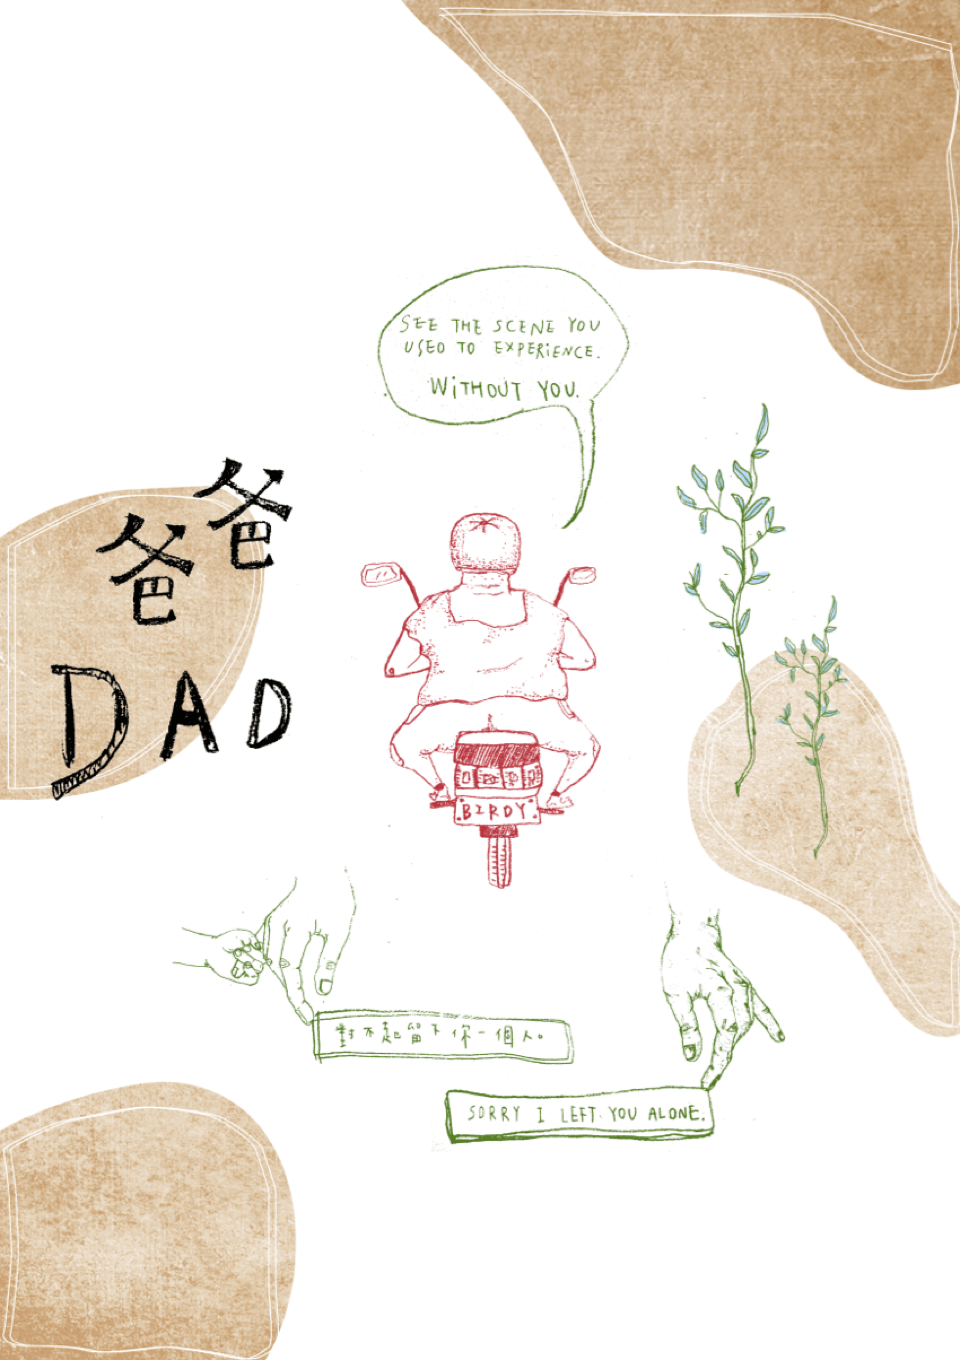 SEE THE SCENE YOU
USED TO EXPERIENCE.
WiTHOUT YOU.
爸爸
DAD
BIRDY
對不起留下你一個人。
SORRY I LEFT YOU ALONE.